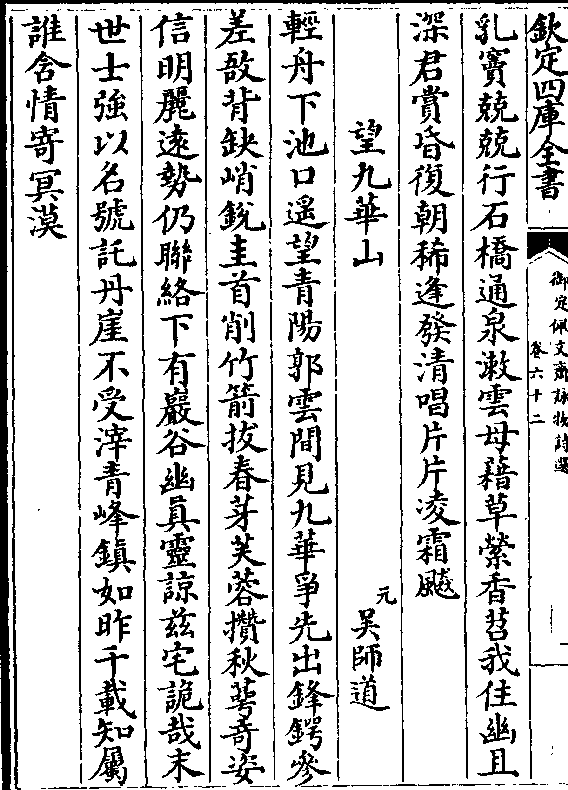 欽定四庫全書
御定佩文齋詠物詩選
卷六十二
乳竇兢兢行石橋通泉漱雲母藉草縈香苕我住幽且
深君賞昏復朝稀逢發清唱片片凌霜飈
望九華山
元
吳師道
輕舟下池口遥望青陽郭雲間見九華爭先出鋒鍔參
差敔背缺峭銳圭首削竹箭拔春芽芙蓉攢秋萼奇姿
信明麗遠勢仍聯絡下有巖谷幽真靈諒兹宅詭哉末
世士強以名號託丹崖不受滓青峰鎮如昨千載知屬
誰含情寄冥漠